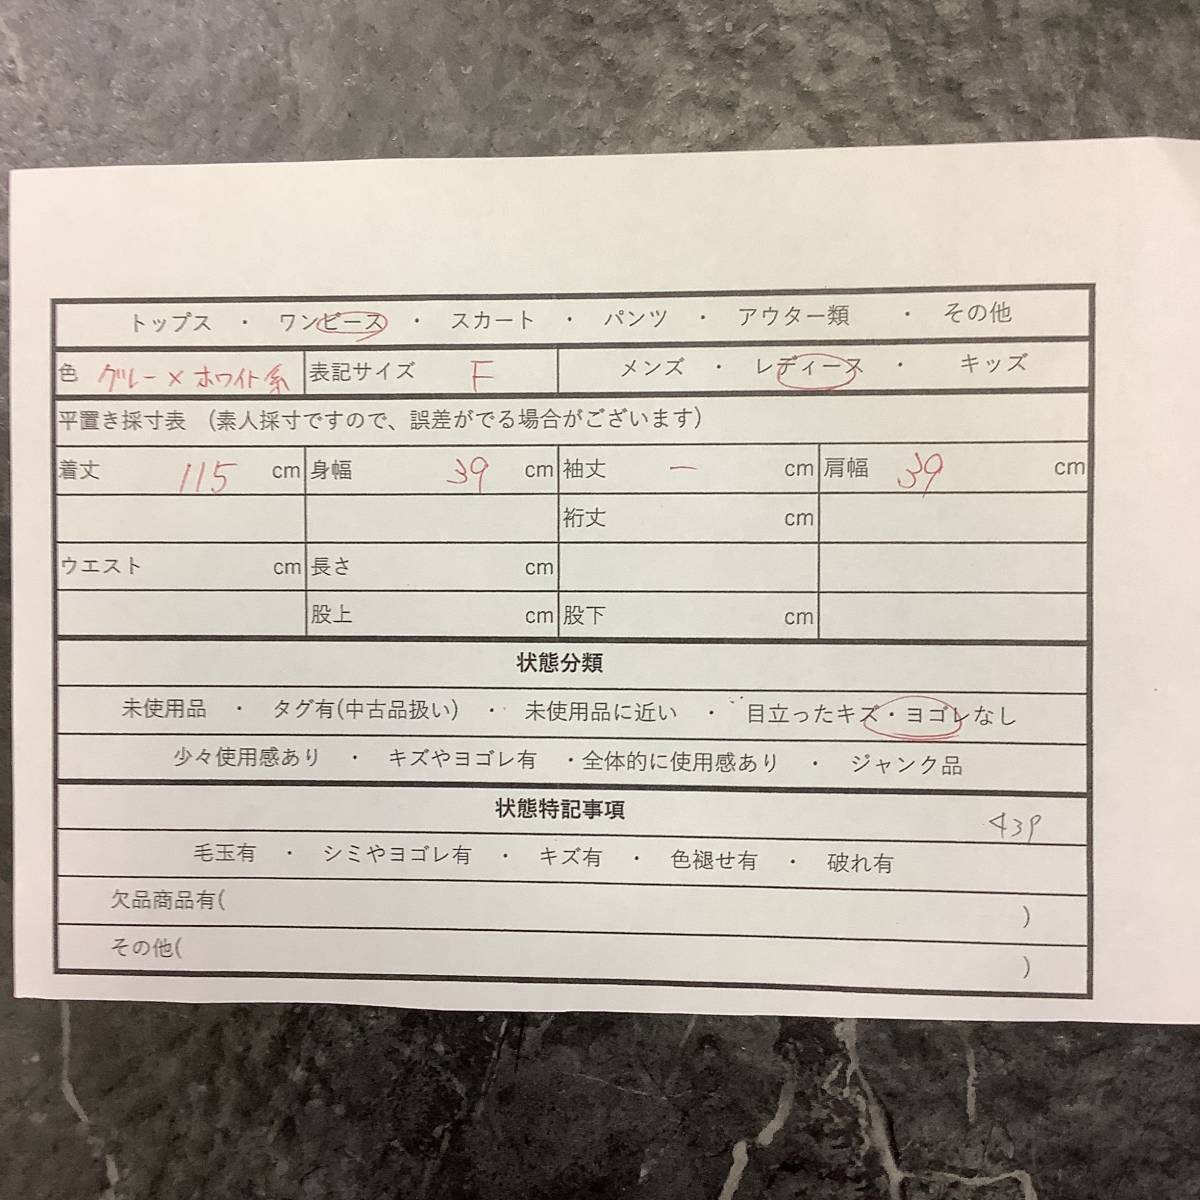 トップス ・ ワンピース ・ スカート ・ パンツ ・ アウター類 ・ その他
色 グレー×ホワイト系 表記サイズ F メンズ ・ レディース ・ キッズ
平置き採寸表 (素人採寸ですので、誤差がでる場合がございます)
着丈 115 cm 身幅 39 cm 袖丈 ー cm 肩幅 39 cm
裄丈 cm
ウエスト cm 長さ cm
股上 cm 股下 cm
状態分類
未使用品 ・ タグ有(中古品扱い) ・ 未使用品に近い ・ 目立ったキズ・ヨゴレなし
少々使用感あり ・ キズやヨゴレ有 ・全体的に使用感あり ・ ジャンク品
状態特記事項
439
毛玉有 ・ シミやヨゴレ有 ・ キズ有 ・ 色褪せ有 ・ 破れ有
欠品商品有( )
その他( )